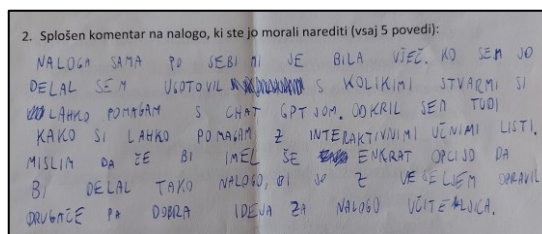 2. Splošen komentar na nalogo, ki ste jo morali narediti (vsaj 5 povedi):
NALOGA SAMA PO SEBI MI JE BILA VŠEČ. KO SEM JO
DELAL SEM UGOTOVIL S KOLIKIMI STVARMI SI
LAHKO POMAGAM S CHAT GPTJOM. ODKRIL SEM TUDI
KAKO SI LAHKO POMAGAM Z INTERAKTIVNIMI UČNIMI LISTI.
MISLIM DA ČE BI IMEL ŠE ENKRAT OPCIJO DA
BI DELAL TAKO NALOGO, BI JO Z VESELJEM OPRAVIL
DRUGAČE PA DOBRA IDEJA ZA NALOGO UČITELJICA.